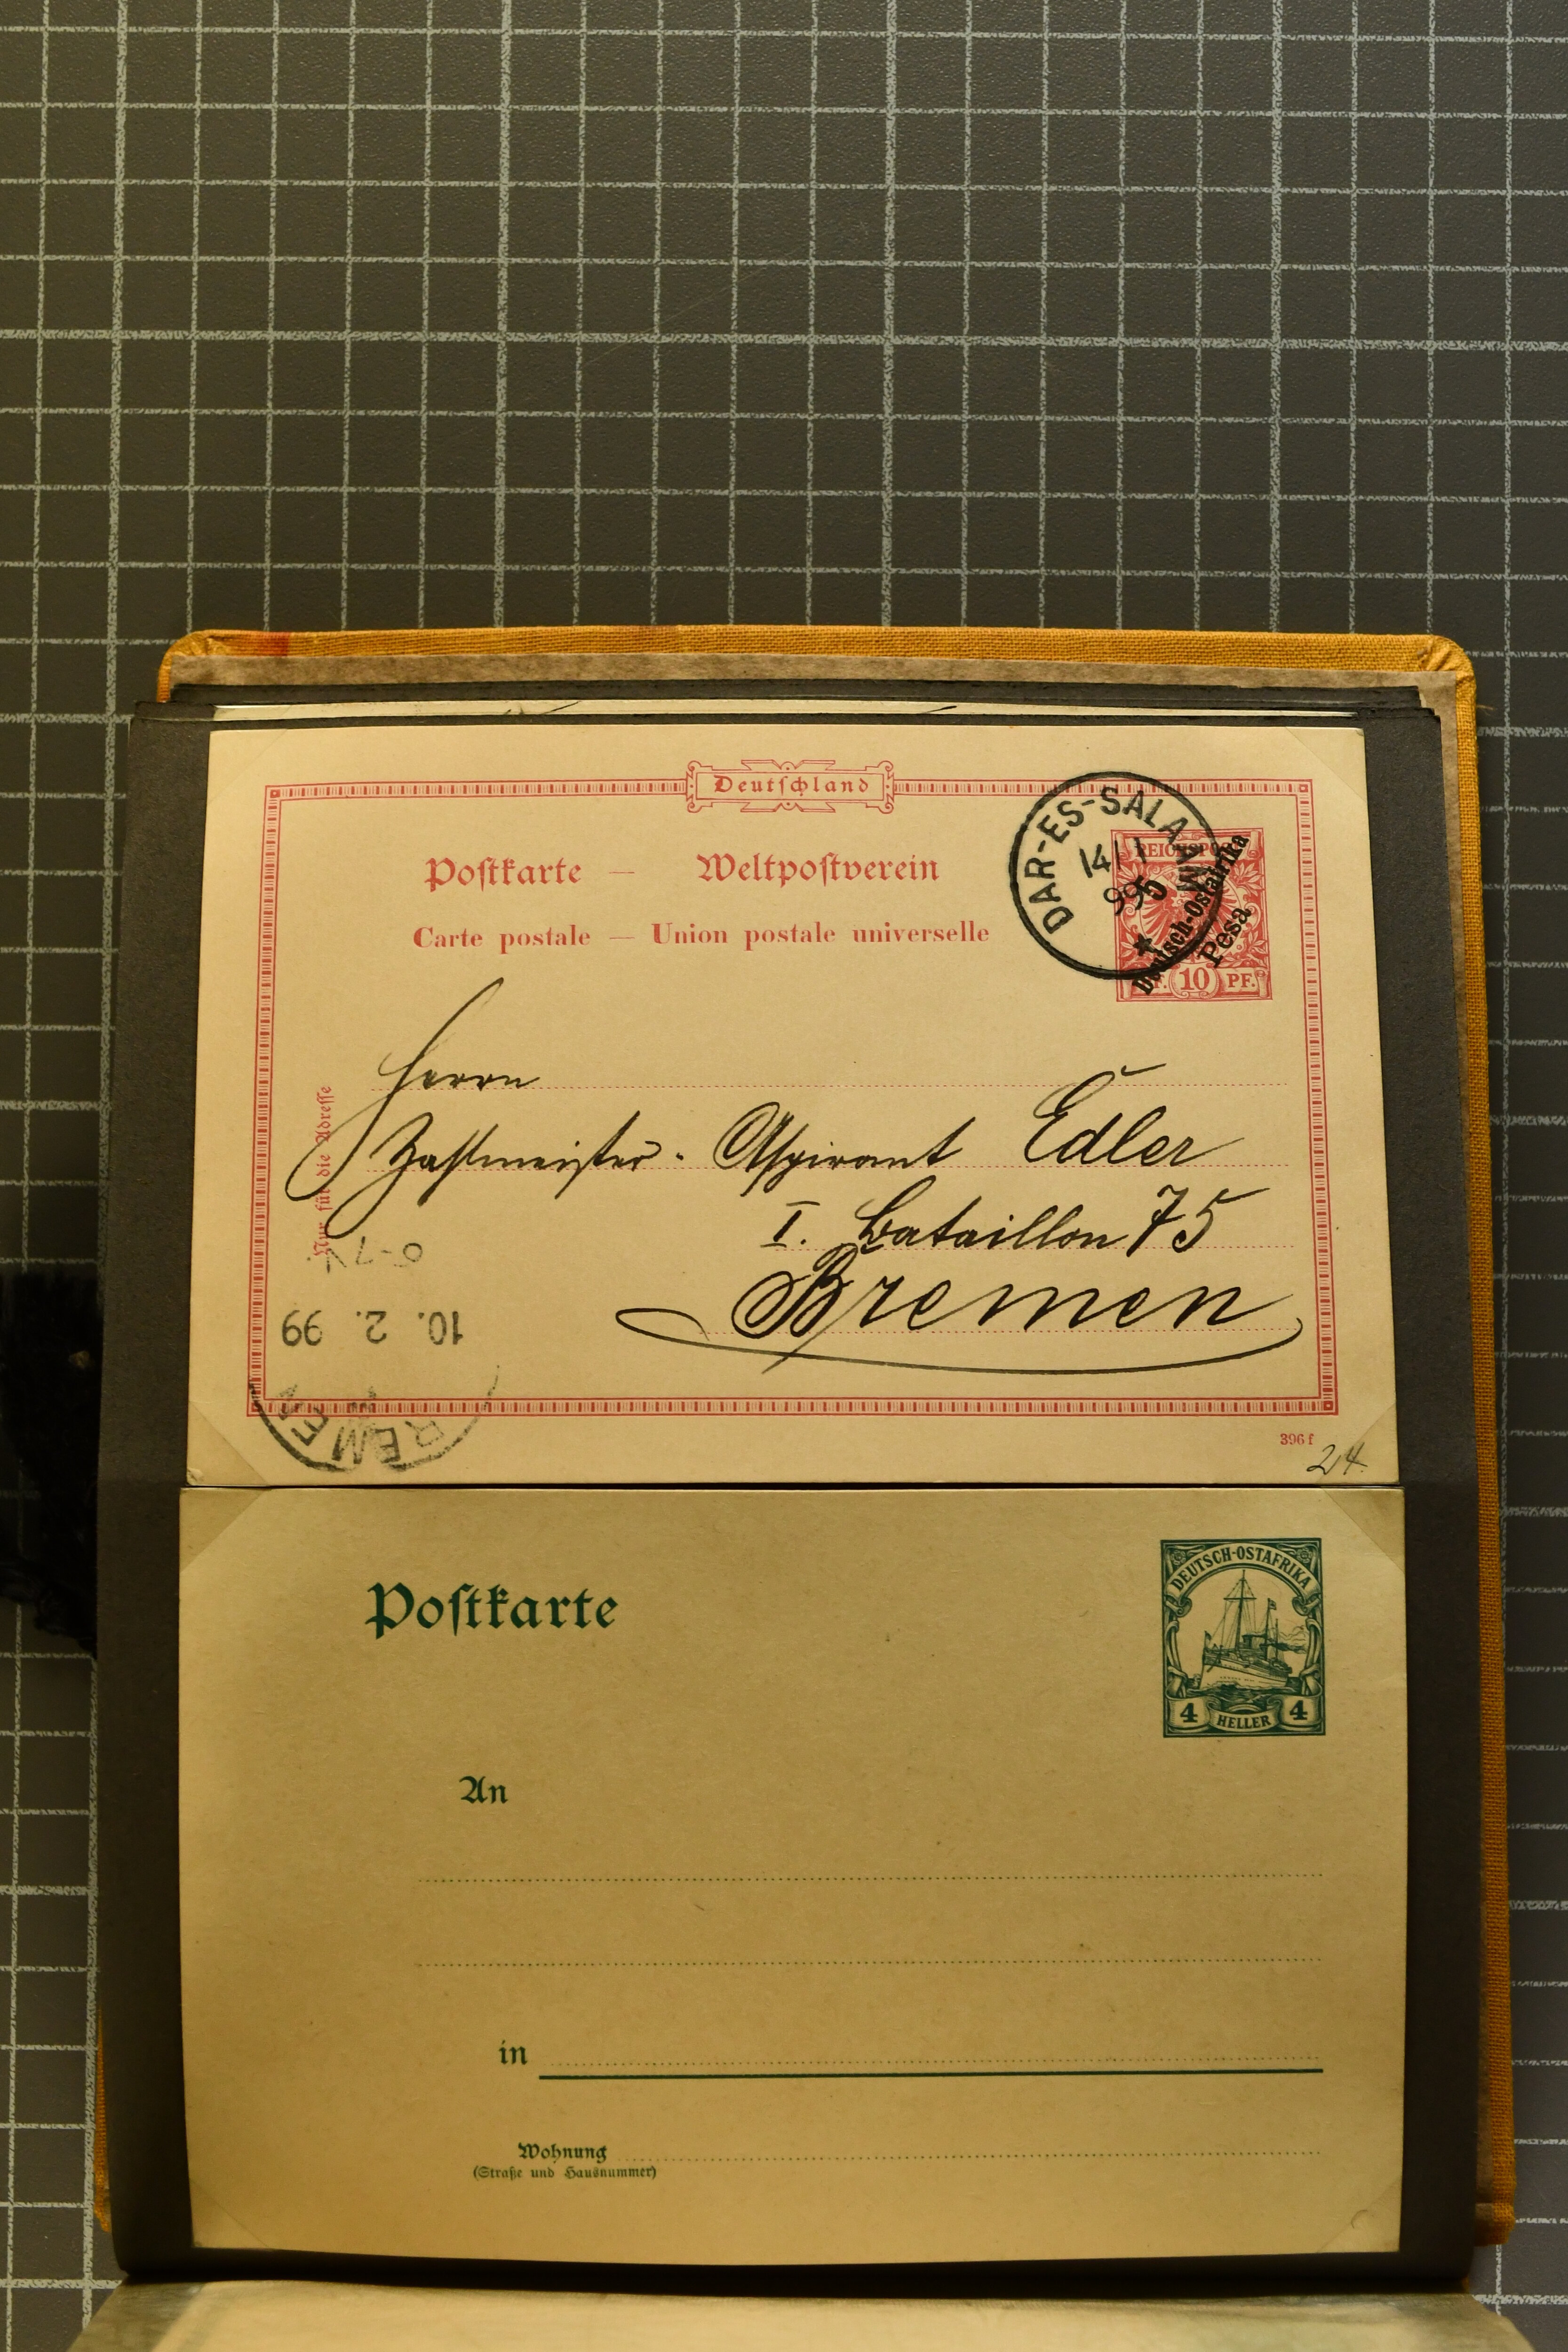 Deutschland
Postkarte — Weltpostverein
Carte postale — Union postale universelle
DAR-ES-SALAAM
14/1
99
REICHSPOST
5
Deutsch-Ostafrika
Pesa
10 PF.
Nur für die Adresse
Herrn
Zahlmeister-Aspirant Edler
I. Bataillon 75
Bremen
10. 2. 99
BREMEN
396 f
24.
Postkarte
DEUTSCH-OSTAFRIKA
4 HELLER 4
An
in
Wohnung
(Straße und Hausnummer)